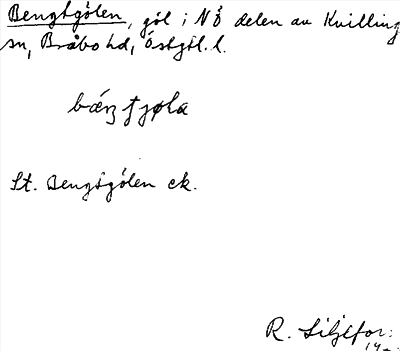 Bengtgölen, göl i NÖ delen av Kvillinge
sn, Bråbo hd, Östgötl. l.
St. Bengtsgölen ek.
R. Liljefor: